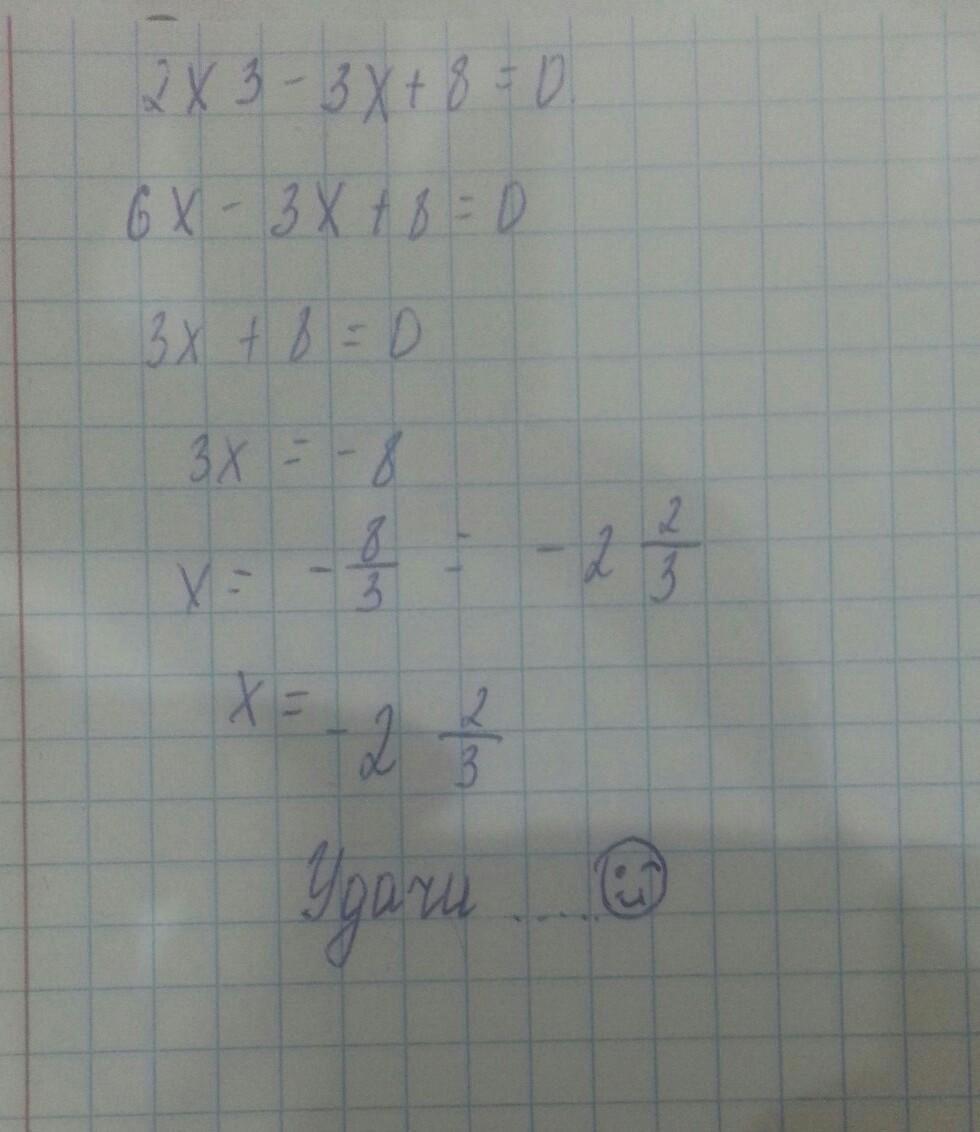 2x3 - 3x + 8 = 0
6x - 3x + 8 = 0
3x + 8 = 0
3x = - 8
x = - 8/3 = - 2 2/3
x = - 2 2/3
Удачи .....